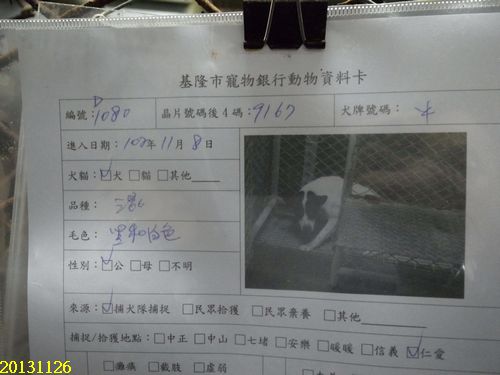 基隆市寵物銀行動物資料卡
編號：D1080 晶片號碼後4碼：9167 犬牌號碼：
進入日期：102年11月8日
犬貓：☑犬 □貓 □其他
品種：混
毛色：黑和白色
性別：☑公 □母 □不明
來源：☑捕犬隊捕捉 □民眾拾獲 □民眾棄養 □其他
捕捉/拾獲地點：□中正 □中山 □七堵 □安樂 □暖暖 □信義 ☑仁愛
□癱瘓 □截肢 □虛弱
20131126